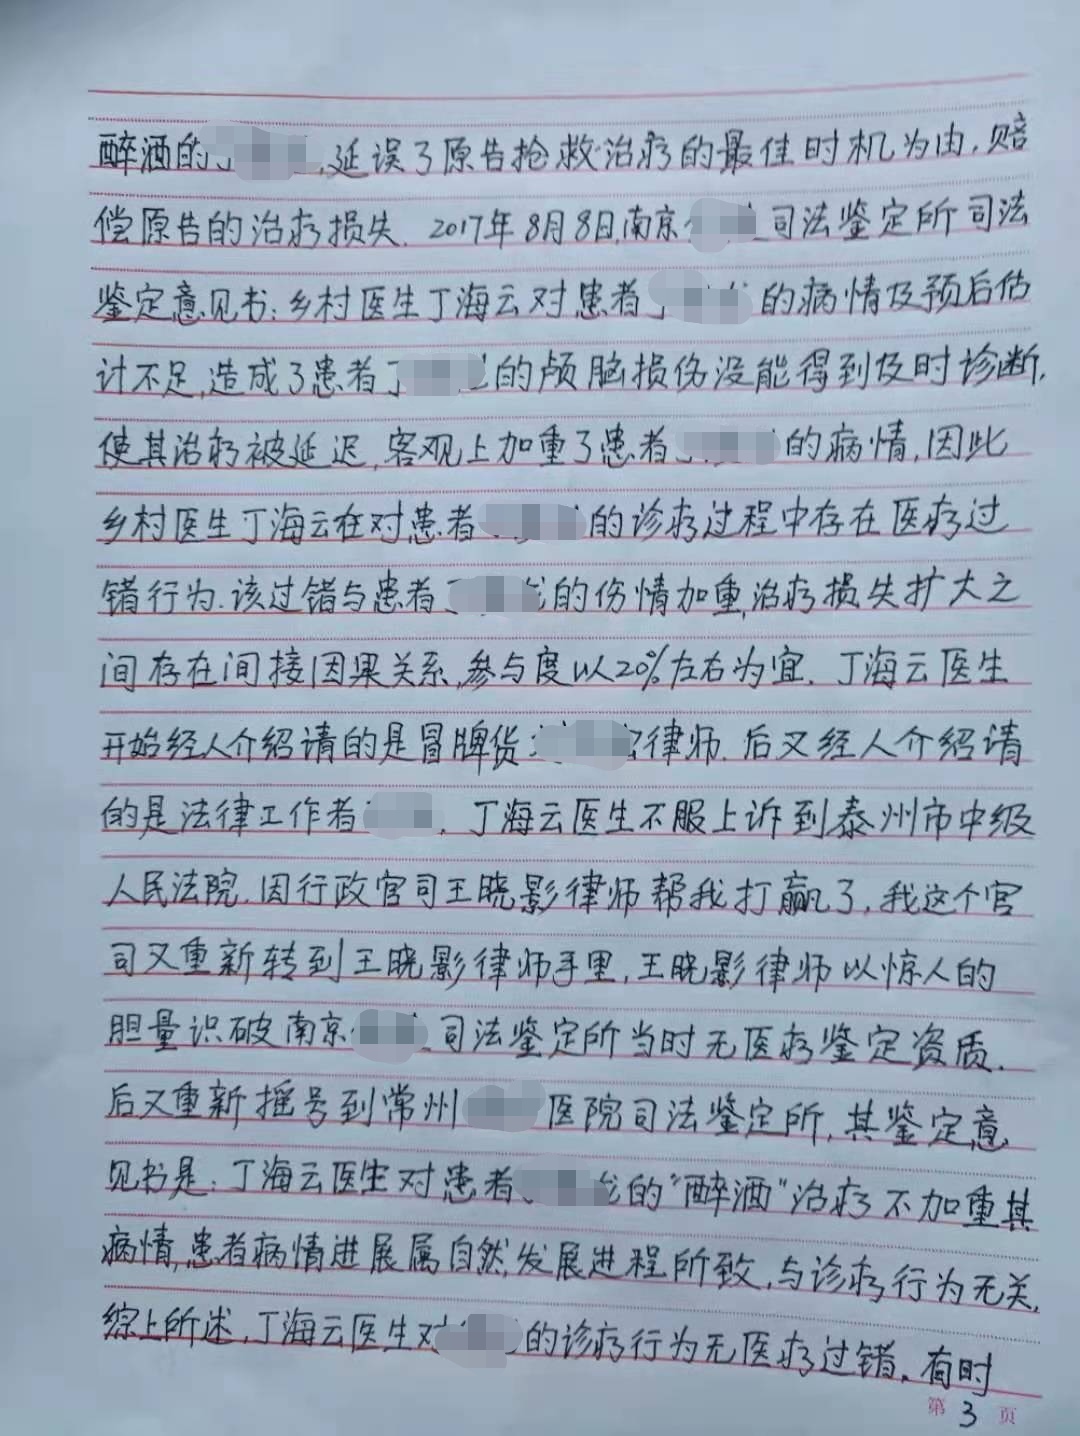 醉酒的丁,延误了原告抢救治疗的最佳时机为由,赔
偿原告的治疗损失.2017年8月8日,南京司法鉴定所司法
鉴定意见书:乡村医生丁海云对患者丁的病情及预后估
计不足,造成了患者丁的颅脑损伤没能得到及时诊断,
使其治疗被延迟,客观上加重了患者丁的病情,因此
乡村医生丁海云在对患者的诊疗过程中存在医疗过
错行为.该过错与患者丁的伤情加重,治疗损失扩大之
间存在间接因果关系,参与度以20%左右为宜.丁海云医生
开始经人介绍请的是冒牌货律师.后又经人介绍请
的是法律工作者.丁海云医生不服上诉到泰州市中级
人民法院.因行政官司王晓影律师帮我打赢了,我这个官
司又重新转到王晓影律师手里,王晓影律师以惊人的
胆量识破南京司法鉴定所当时无医疗鉴定资质.
后又重新摇号到常州医院司法鉴定所,其鉴定意
见书是:丁海云医生对患者的"醉酒"治疗不加重其
病情,患者病情进展属自然发展进程所致,与诊疗行为无关.
综上所述,丁海云医生对的诊疗行为无医疗过错。有时
第3页